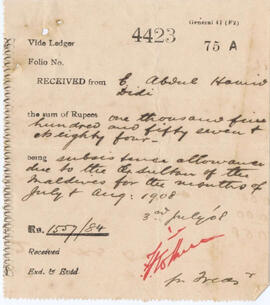 General 41 (F2)
Vide Ledger 4423 75 A
Folio No.
RECEIVED from E Abdul Hamid
Didi
the sum of Rupees one thousand five
hundred and fifty seven &
cts eighty four
being subsistence allowance
due to the Ex Sultan of the
Maldives for the months of
July & Aug. 1908
3rd July 08
Rs. 1557/84
Received
Exd. & Entd. pr Treas